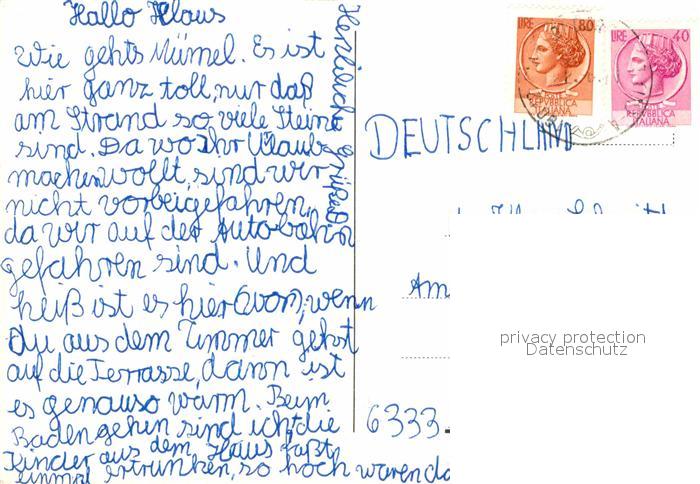 Hallo Klaus
Wie gehts Mümel. Es ist
hier ganz toll, nur daß
am Strand so viele Steine
sind. Da wo Ihr Urlaub
machen wollt, sind wir
nicht vorbeigefahren,
da wir auf der Autobahn
gefahren sind. Und
heiß ist es hier (vorn, wenn
du aus dem Zimmer gehst
auf die Terrasse, dann ist
es genauso warm. Beim
Baden gehen sind ich die
Kinder aus dem Haus faßt
einmal ertrunken, so hoch waren da
Herzliche Grüße
LIRE 80
POSTE
REPVBBLICA
ITALIANA
LIRE 40
POSTE
REPVBBLICA
ITALIANA
DEUTSCHLAND
Am
6333
privacy protection
Datenschutz